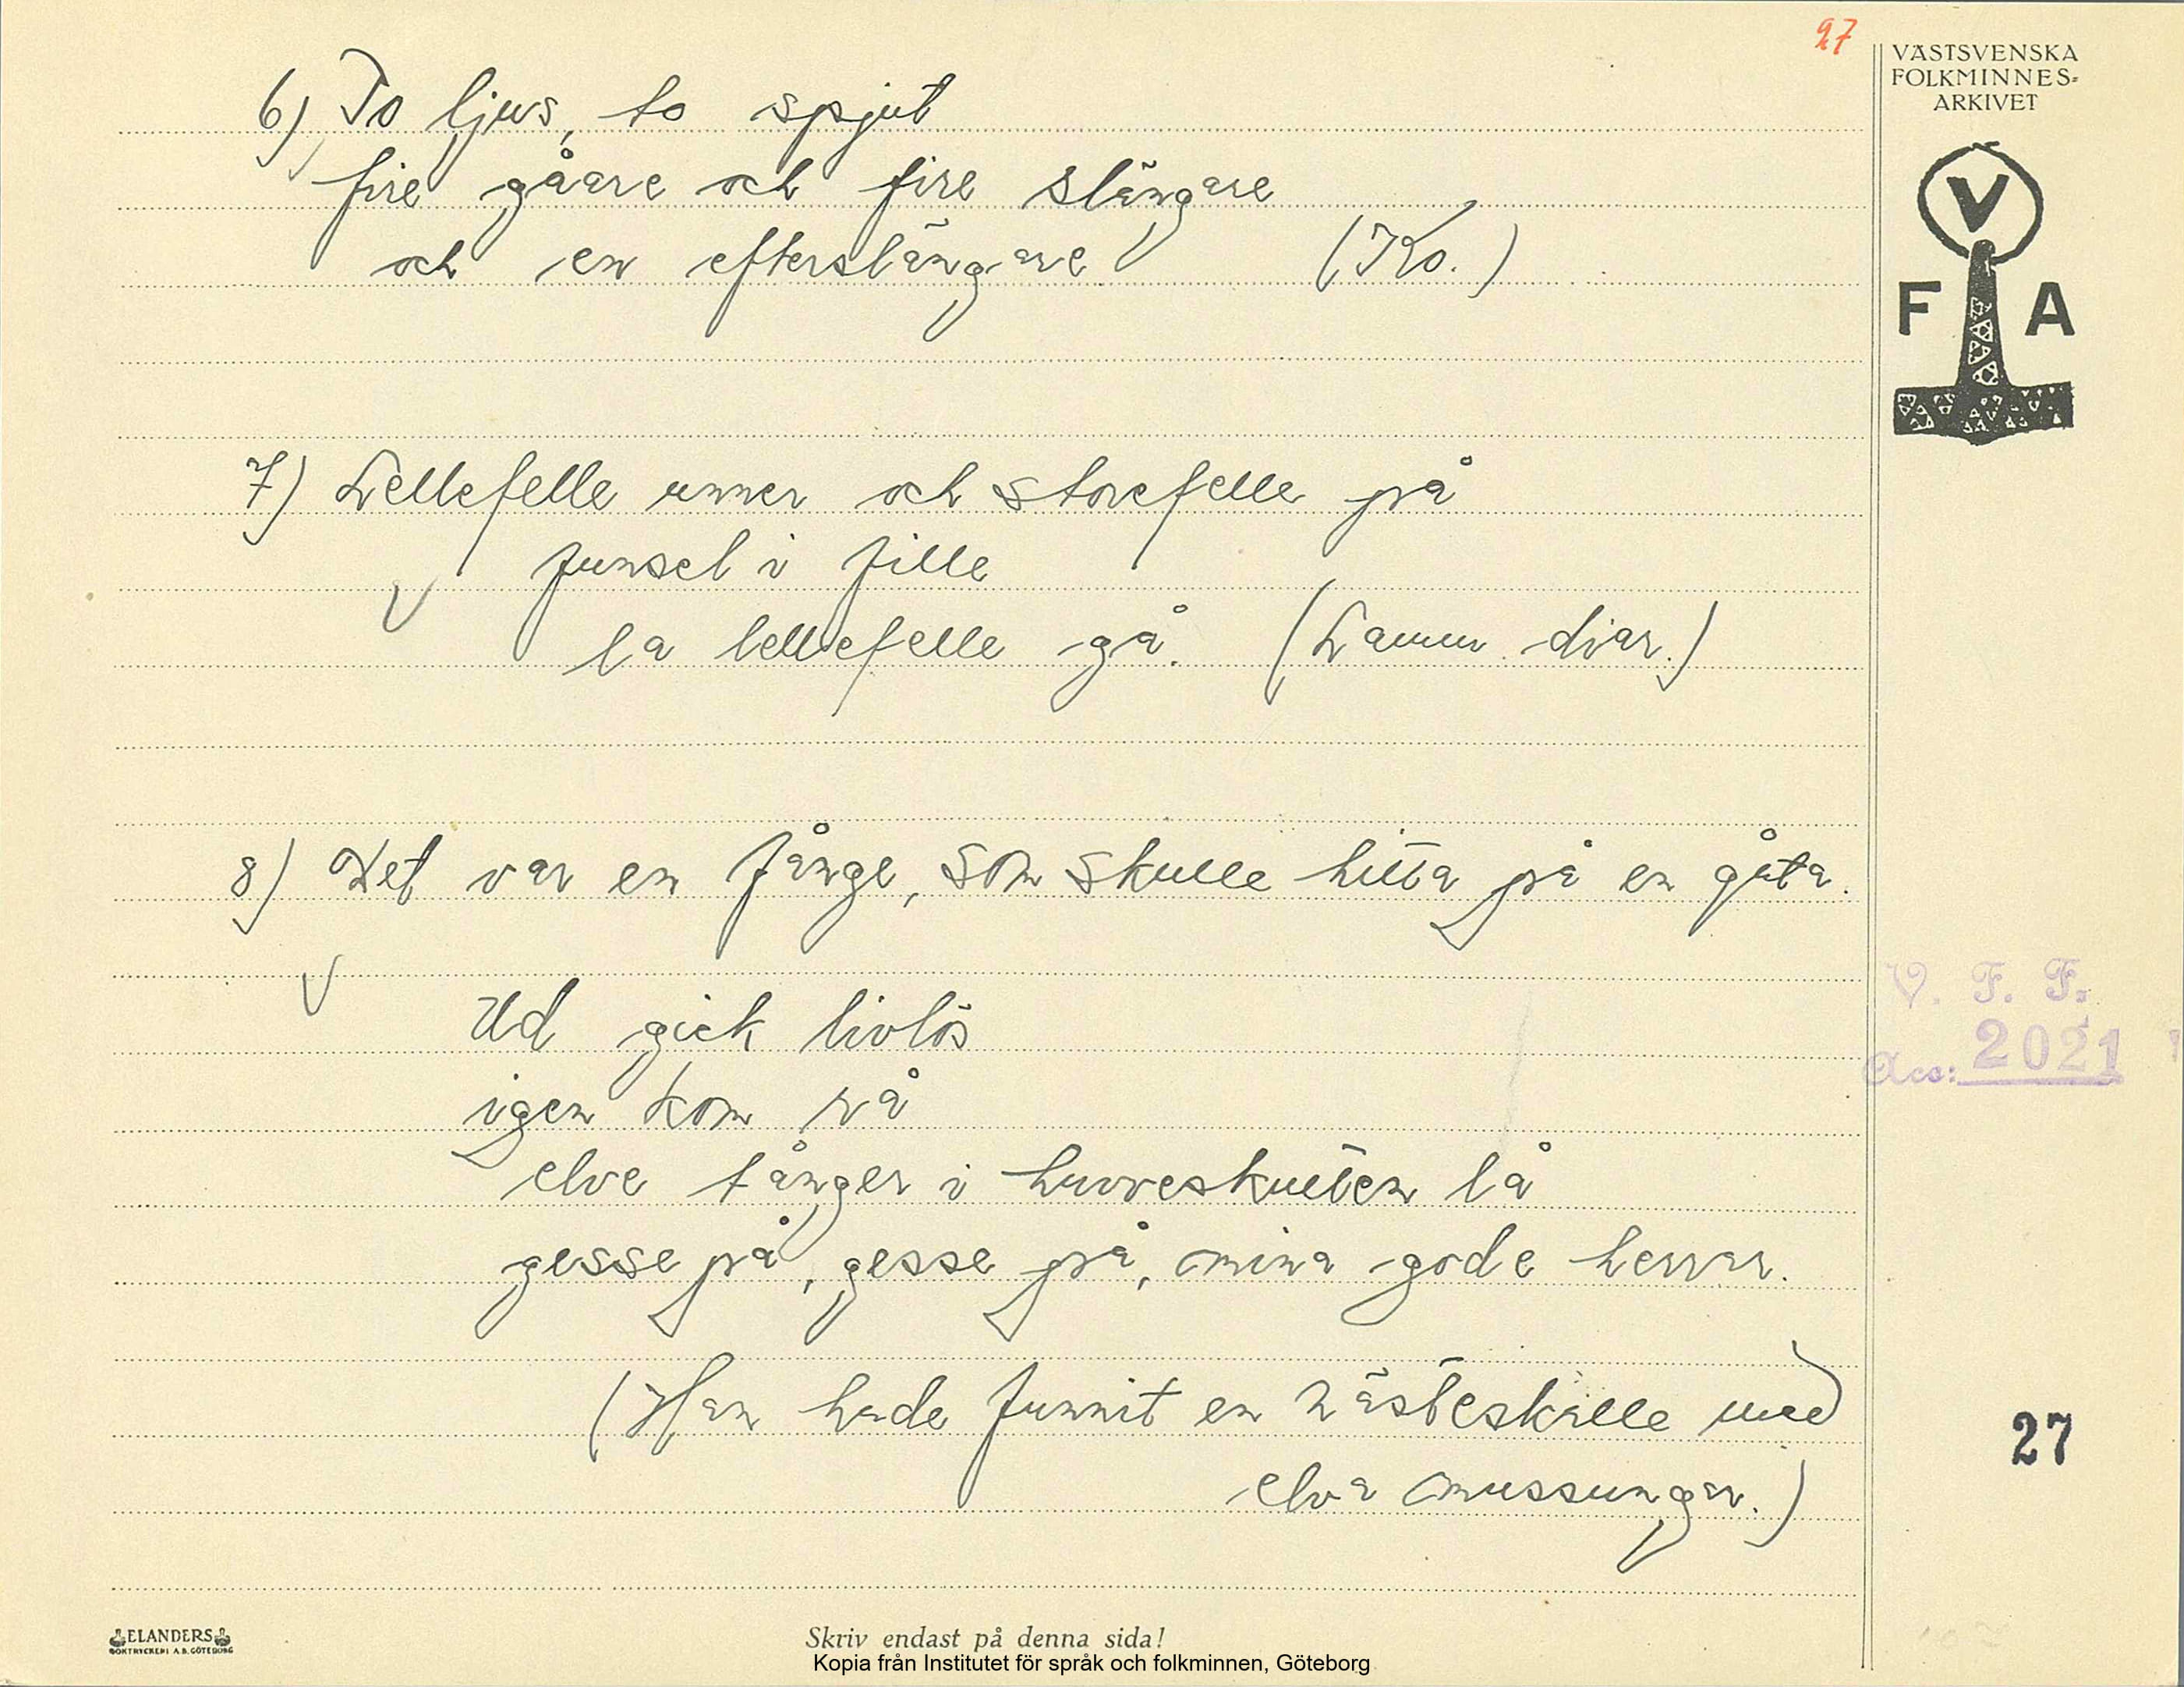 27
VÄSTSVENSKA
FOLKMINNES-
ARKIVET
V
F A
6) To ljus, to spjut
fire gåare och fire slängare
och en efterslängare (Ko.)
7) Lellefelle unner och storefelle på
funsel i fille
la lellefelle gå. (Lamm diar.)
8) Det var en fånge, som skulle hitta på en gåta.
Ud gick livlös
igen kom rå
elve tånger i huvveskulten lå
gesse på, gesse på, mina gode herrar.
(Han hade funnit en hästeskalle med
elva mussungar.)
V. F. F.
Acc: 2021
27
ELANDERS
BOKTRYCKERI A.B. GÖTEBORG
Skriv endast på denna sida!
Kopia från Institutet för språk och folkminnen, Göteborg